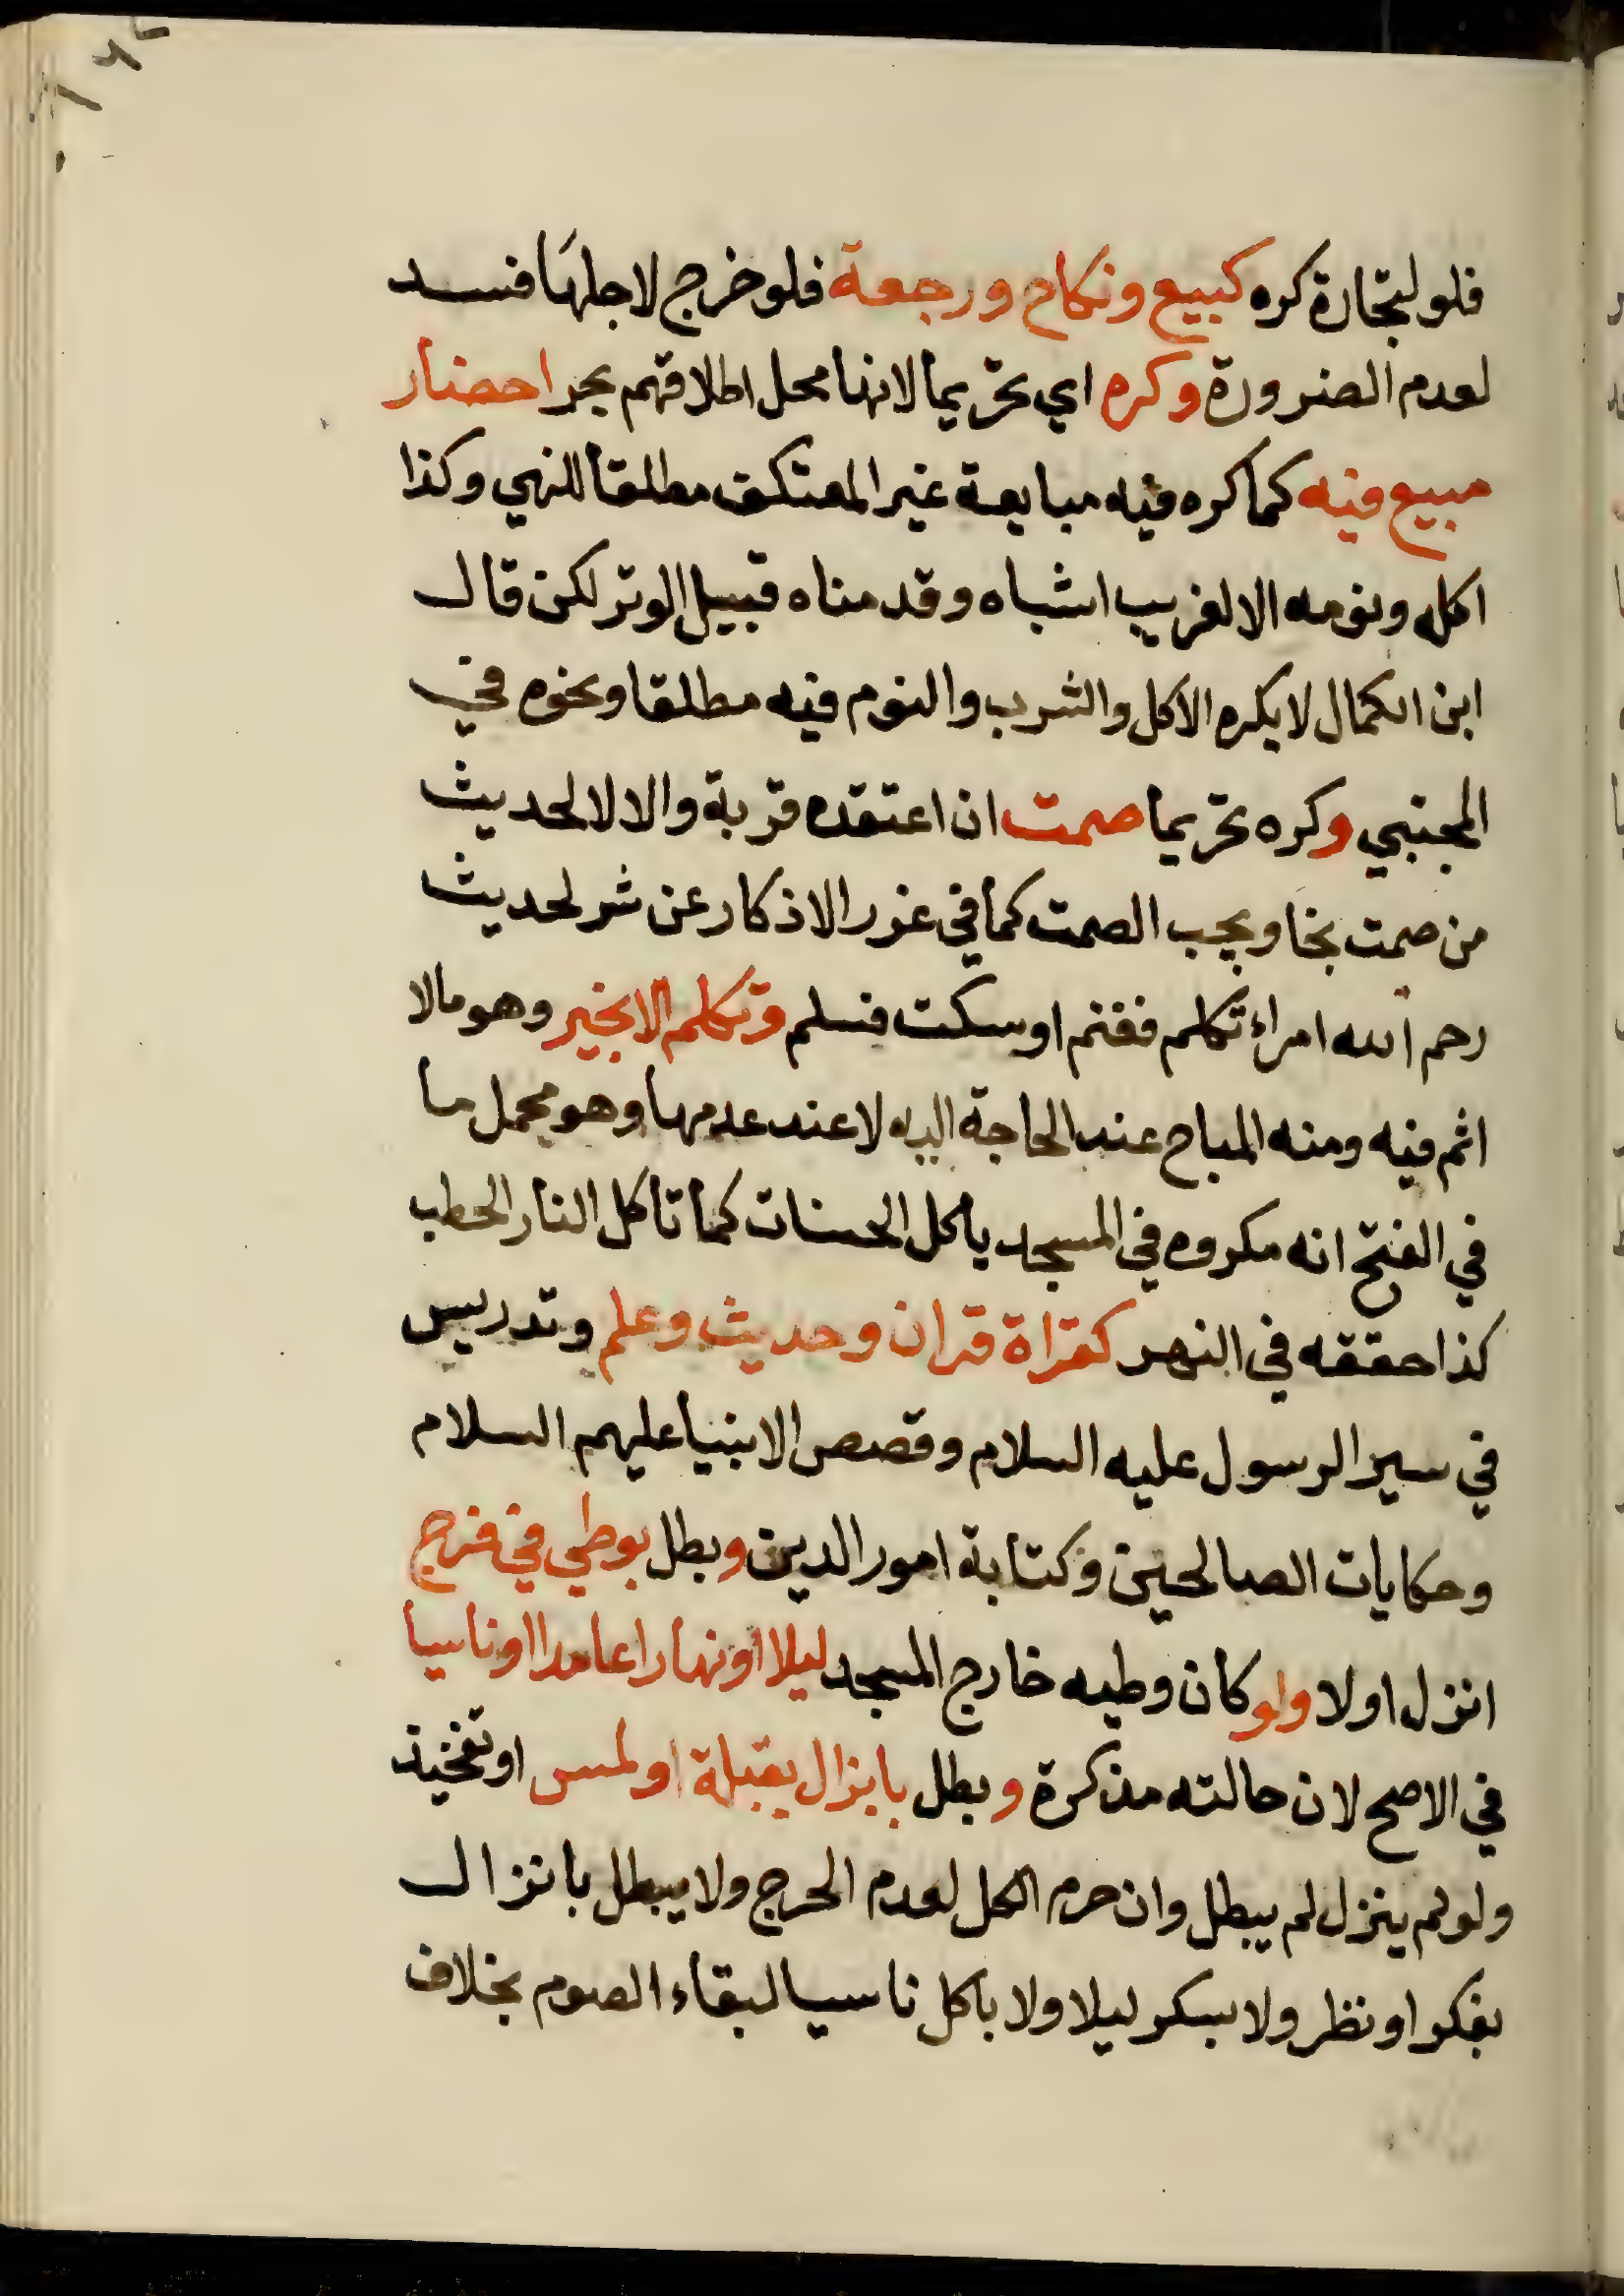 فلو لتجارة كره كبيع ونكاح ورجعة فلو خرج لاجلها فسد
لعدم الضرورة وكره اي تحريما لانها محل اطلاقهم بحر احضار
مبيع فيه كما كره فيه مبايعة غير المعتكف مطلقا للنهي وكذا
اكله ونومه الا لغريب اشباه وقد مناه قبيل الوتر لكن قال
ابن الكمال لا يكره الاكل والشرب والنوم فيه مطلقا ونحوه في
المجتبي وكره تحريما صمت ان اعتقده قربة والا لا لحديث
من صمت نجا ويجب الصمت كما في غرر الاذكار عن شر لحديث
رحم الله امراء تكلم فغنم او سكت فسلم وتكلم الا بخير وهو مالا
اثم فيه ومنه المباح عند الحاجة اليه لا عند عدمها وهو محمل ما
في الفتح انه مكروه في المسجد ياكل الحسنات كما تاكل النار الحطب
كذا حققه في النهر كقراة قران وحديث وعلم وتدريس
في سير الرسول عليه السلام وقصص الانبيا عليهم السلام
وحكايات الصالحين وكتابة امور الدين وبطل بوطي في فرج
انزل اولا ولو كان وطيه خارج المسجد ليلا او نهارا عامدا او ناسيا
في الاصح لان حالته مذكرة وبطل بانزال بقبلة او لمس او تفخيذ
ولو لم ينزل لم يبطل وان حرم الكل لعدم الحرج ولا يبطل بانزال
بفكر او نظر ولا بسكر ليلا ولا باكل ناسيا لبقاء الصوم بخلاف